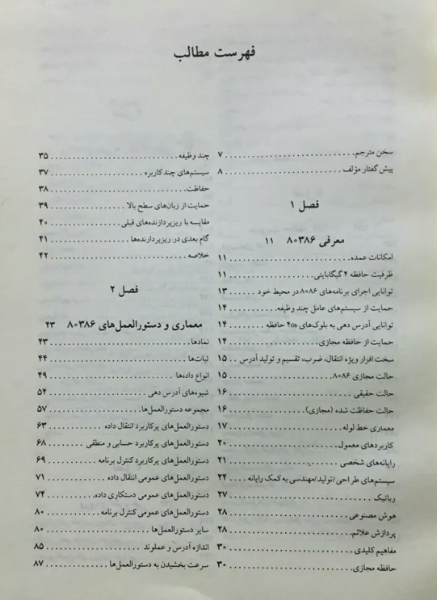 فهرست مطالب
سخن مترجم ۷
پیش گفتار مؤلف ۸
فصل ۱
معرفی ۸۰۳۸۶ ۱۱
امکانات عمده ۱۱
ظرفیت حافظه ۴ گیگابایتی ۱۱
توانایی اجرای برنامه‌های ۸۰۸۶ در محیط خود ۱۳
حمایت از سیستم‌های عامل چند وظیفه ۱۴
توانایی آدرس دهی به بلوک‌های حافظه ۱۴
حمایت از حافظه مجازی ۱۴
سخت افزار ویژه انتقال، ضرب، تقسیم و تولید آدرس ۱۵
حالت مجازی ۸۰۸۶ ۱۵
حالت حقیقی ۱۶
حالت حفاظت شده (مجازی) ۱۶
معماری خط لوله ۱۷
کاربردهای معمول ۲۰
رایانه‌های شخصی ۲۱
سیستم‌های طراحی/تولید/مهندسی به کمک رایانه ۲۴
رباتیک ۲۷
هوش مصنوعی ۲۸
پردازش علائم ۲۸
مفاهیم کلیدی ۳۰
حافظه مجازی ۳۰
چند وظیفه ۳۵
سیستم‌های چند کاربره ۳۷
حفاظت ۳۸
حمایت از زبان‌های سطح بالا ۳۹
مقایسه با ریزپردازنده‌های قبلی ۴۰
گام بعدی در ریزپردازنده‌ها ۴۱
خلاصه ۴۲
فصل ۲
معماری و دستورالعمل‌های ۸۰۳۸۶ ۴۳
نمادها ۴۳
ثبات‌ها ۴۴
انواع داده‌ها ۴۹
شیوه‌های آدرس دهی ۵۴
مجموعه دستورالعمل‌ها ۵۷
دستورالعمل‌های پرکاربرد انتقال داده ۶۳
دستورالعمل‌های پرکاربرد حسابی و منطقی ۶۸
دستورالعمل‌های پرکاربرد کنترل برنامه ۶۹
دستورالعمل‌های عمومی انتقال داده ۷۱
دستورالعمل‌های عمومی دستکاری داده ۷۴
دستورالعمل‌های عمومی کنترل برنامه ۸۰
سایر دستورالعمل‌ها ۸۰
اندازه آدرس و عملوند ۸۵
سرعت بخشیدن به دستورالعمل‌ها ۸۷